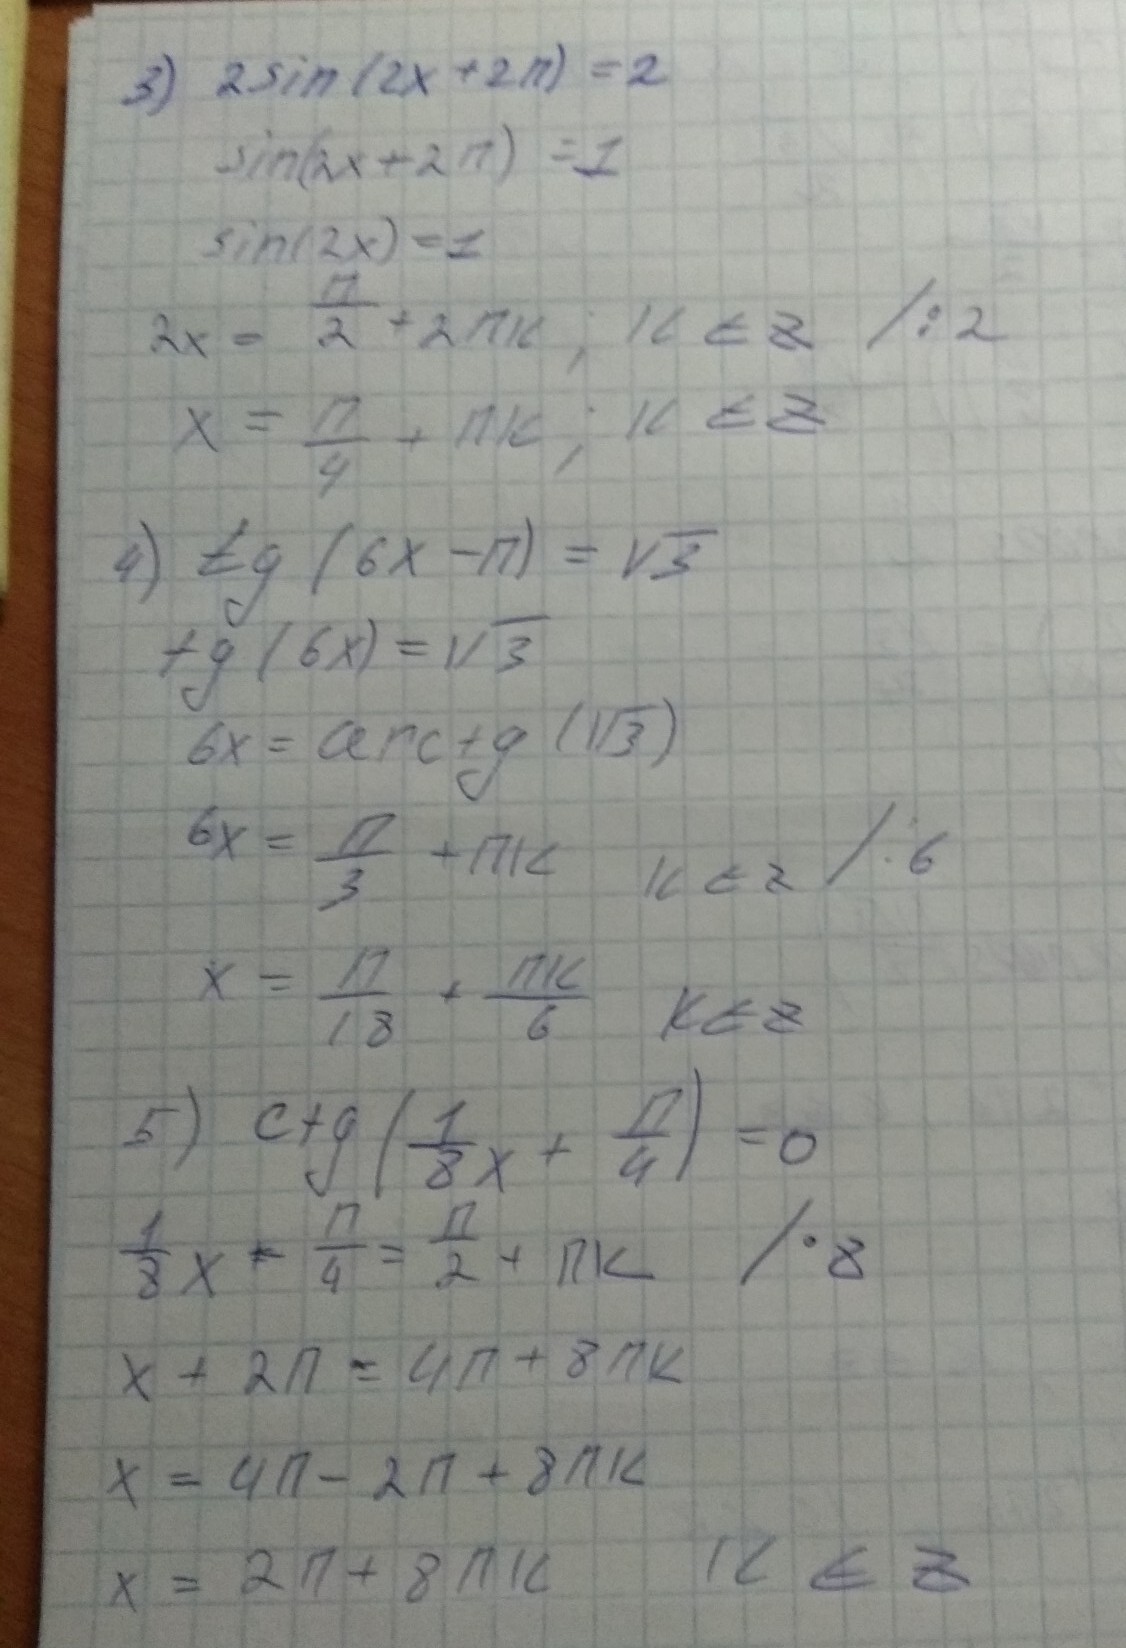 3) 2sin(2x+2π) = 2
sin(2x+2π) = 1
sin(2x) = 1
2x = π/2 + 2πk ; k ∈ Z /:2
x = π/4 + πk ; k ∈ Z
4) tg (6x - π) = √3
tg (6x) = √3
6x = arctg (√3)
6x = π/3 + πk k ∈ z /:6
x = π/18 + πk/6 k ∈ z
5) ctg (1/8 x + π/4) = 0
1/8 x + π/4 = π/2 + πk /·8
x + 2π = 4π + 8πk
x = 4π - 2π + 8πk
x = 2π + 8πk k ∈ Z